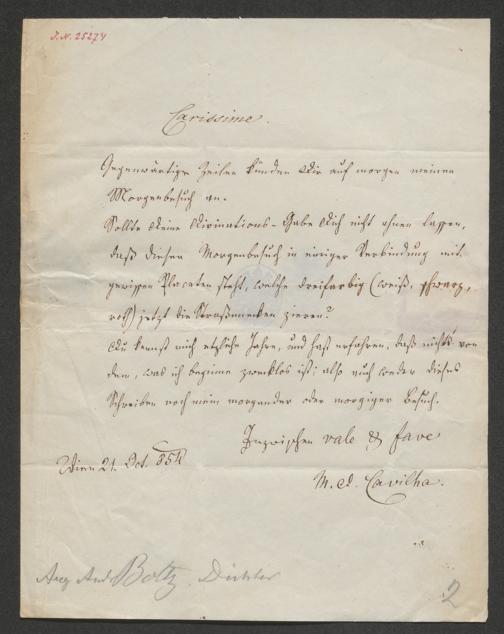 J.N. 25274
Carissime.
Gegenwärtige Zeilen künden Dir auf morgen meinen
Morgenbesuch an.
Sollte Deine Divinations-Gabe Dich nicht ahnen lassen,
daß dieser Morgenbesuch in einiger Verbindung mit
gewissen Placaten steht, welche dreifarbig (weiß, schwarz,
roth) jetzt die Straßenecken zieren?
Du kennst mich etliche Jahre, und hast erfahren, daß nichts von
dem, was ich beginne zwecklos ist; also auch weder dieses
Schreiben noch mein morgender oder morgiger Besuch.
Inzwischen vale & fave
Wien 21. Oct.
M. D. Cavilha.
Boltz Dichter
2